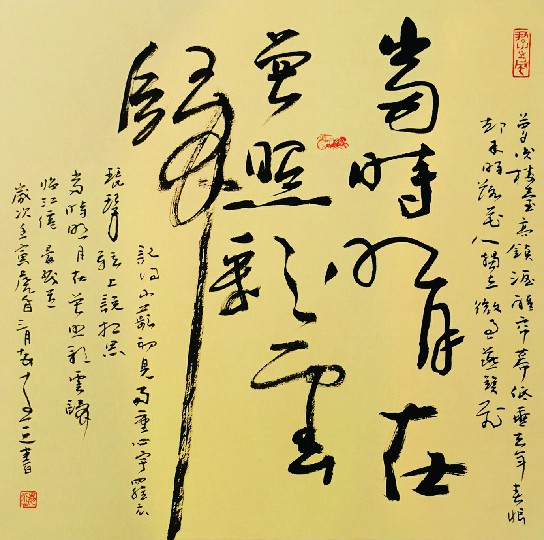 夢後樓臺高鎖酒醒簾幕低垂去年春恨
却來時落花人獨立微雨燕雙飛
當時明月在
曾照彩雲
歸
記得小蘋初見兩重心字羅衣
琵琶弦上說相思
當時明月在曾照彩雲歸
臨江仙 晏幾道
歲次壬寅虎年三月
書